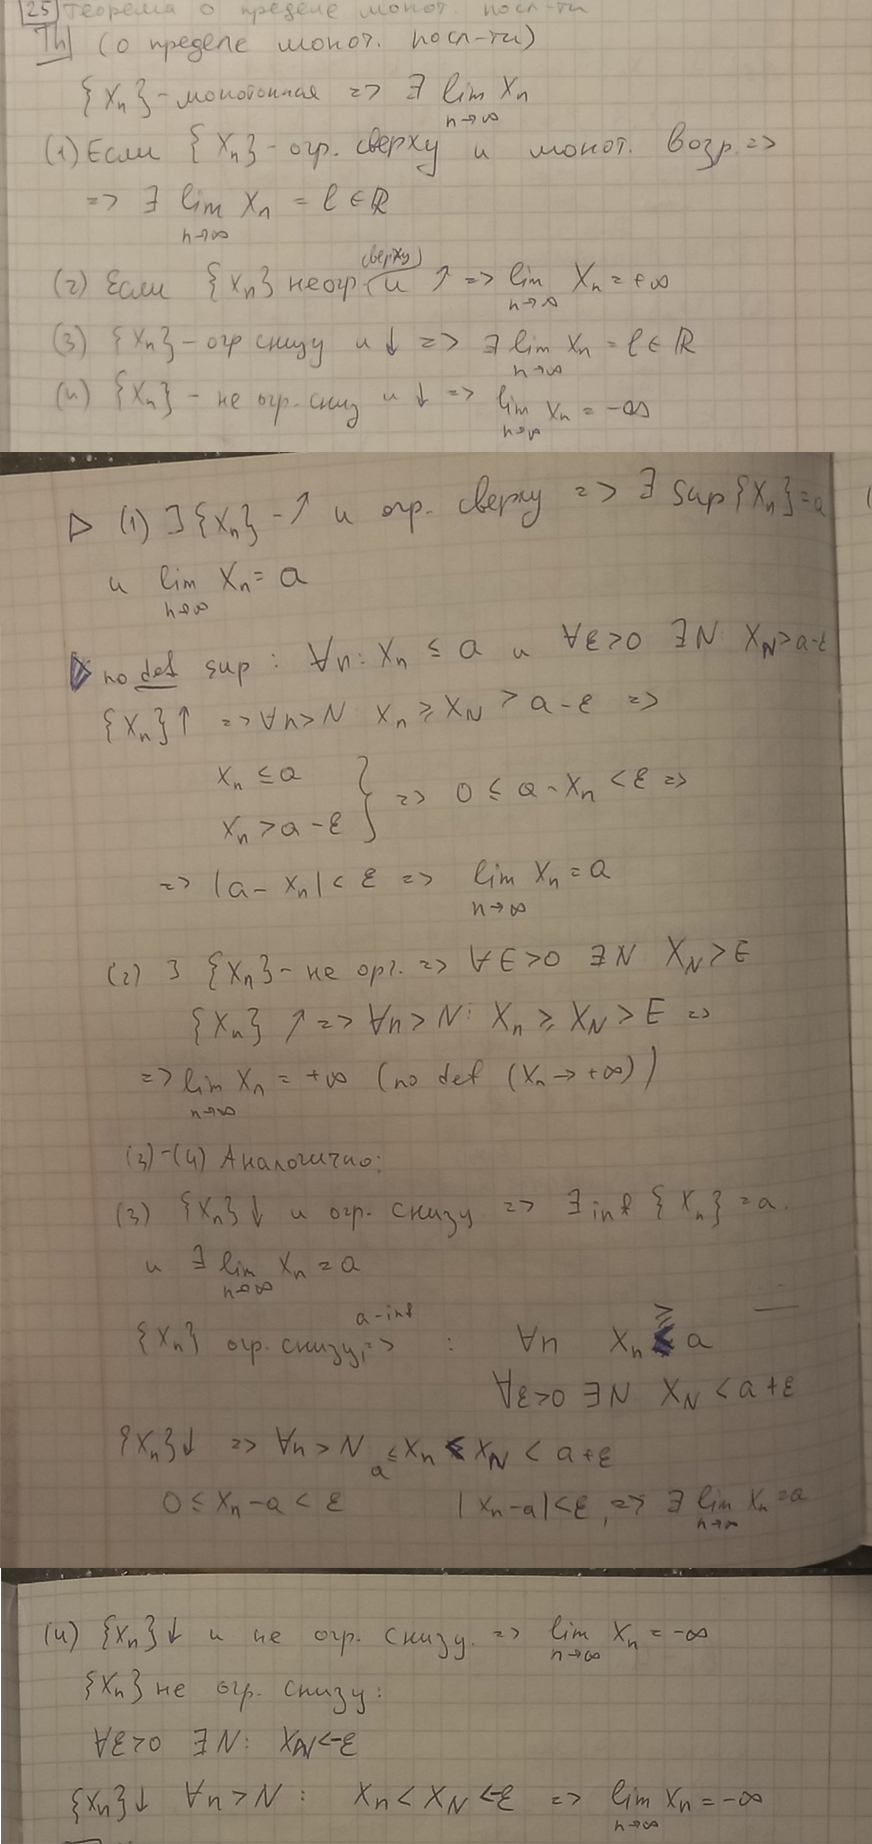 25 Теорема о пределе монот. посл-ти
Th (о пределе монот. посл-ти)
{Xn} - монотонная => ∃ lim Xn
n→∞
(1) Если {Xn} - огр. сверху и монот. возр. =>
=> ∃ lim Xn = l ∈ ℝ
n→∞
(2) Если {Xn} неогр. (сверху) и ↑ => lim Xn = +∞
n→∞
(3) {Xn} - огр снизу и ↓ => ∃ lim Xn = l ∈ ℝ
n→∞
(4) {Xn} - не огр. сниз и ↓ => lim Xn = -∞
n→∞
▷ (1) ∃ {Xn} - ↗ и огр. сверху => ∃ sup {Xn} = a
и lim Xn = a
n→∞
▷ по def sup : ∀n: Xn ≤ a и ∀ε>0 ∃N XN > a-ε
{Xn}↑ => ∀n>N Xn ≥ XN > a-ε =>
Xn ≤ a
Xn > a-ε } => 0 ≤ a - Xn < ε =>
=> |a - Xn| < ε => lim Xn = a
n→∞
(2) ∃ {Xn} - не орг. => ∀E>0 ∃N XN > E
{Xn} ↗ => ∀n > N: Xn ≥ XN > E =>
=> lim Xn = +∞ (по def (Xn → +∞))
n→∞
(3)-(4) Аналогично:
(3) {Xn}↓ и огр. снизу => ∃ inf {Xn} = a.
и ∃ lim Xn = a
n→∞
{Xn} огр. снизу, a-inf => : ∀n Xn ≥ a
∀ε>0 ∃N XN < a+ε
{Xn}↓ => ∀n > N a ≤ Xn ≤ XN < a+ε
0 ≤ Xn - a < ε |Xn-a| < ε, => ∃ lim Xn = a
n→∞
(4) {Xn}↓ и не огр. снизу. => lim Xn = -∞
n→∞
{Xn} не огр. снизу:
∀ε>0 ∃N: XN < -ε
{Xn}↓ ∀n > N : Xn < XN < -ε => lim Xn = -∞
n→∞